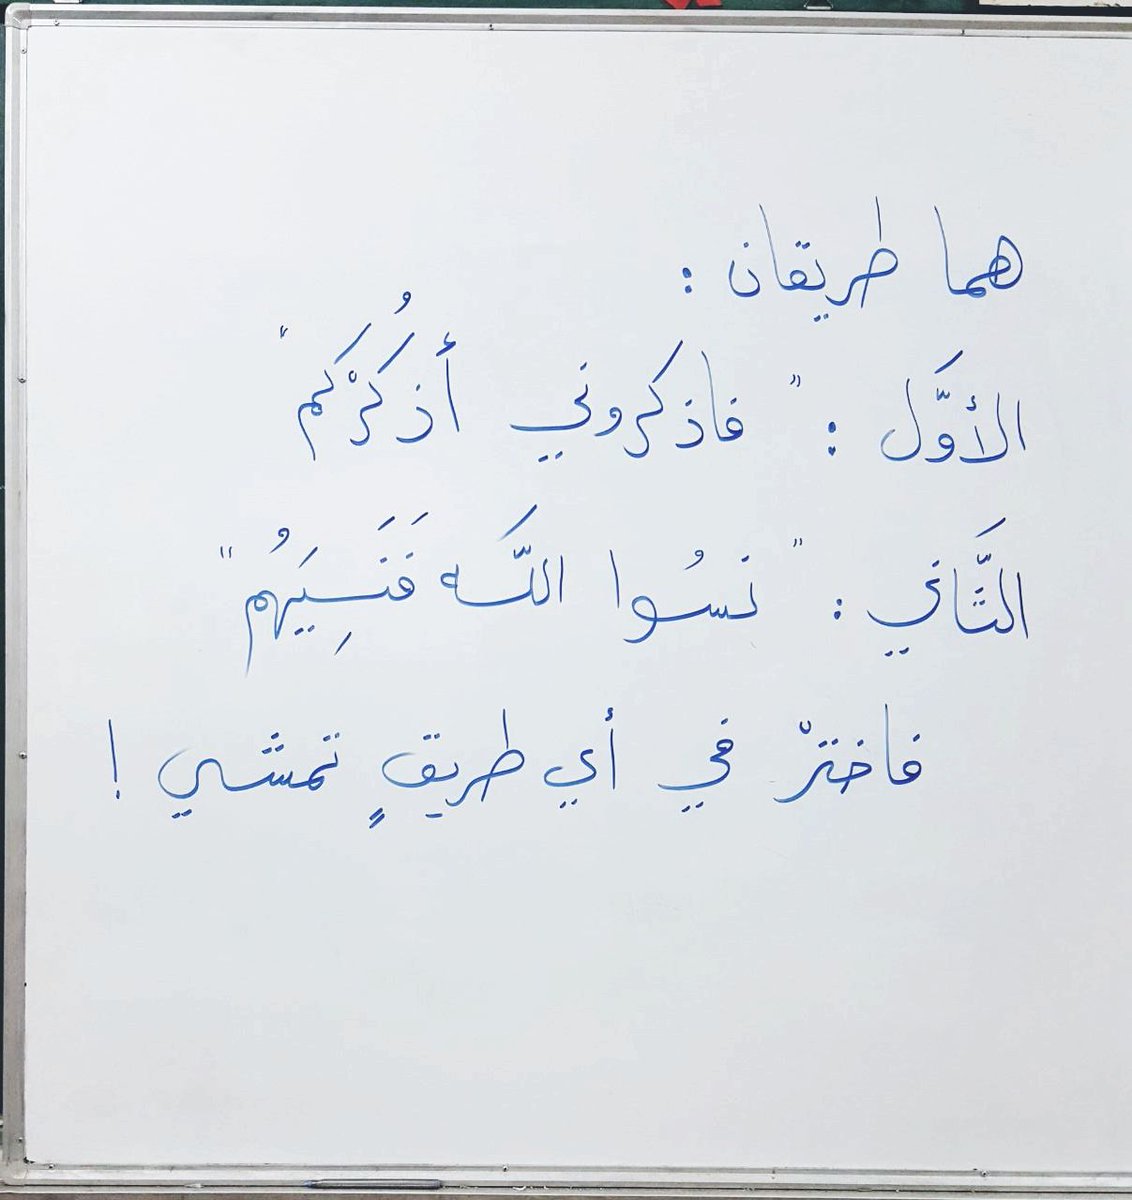 هما طريقان :
الأوَّل : " فاذكروني أذكُرْكم "
الثَّاني : " نسُوا اللَّه فَنَسِيَهُم "
فاخترْ في أي طريقٍ تمشي !